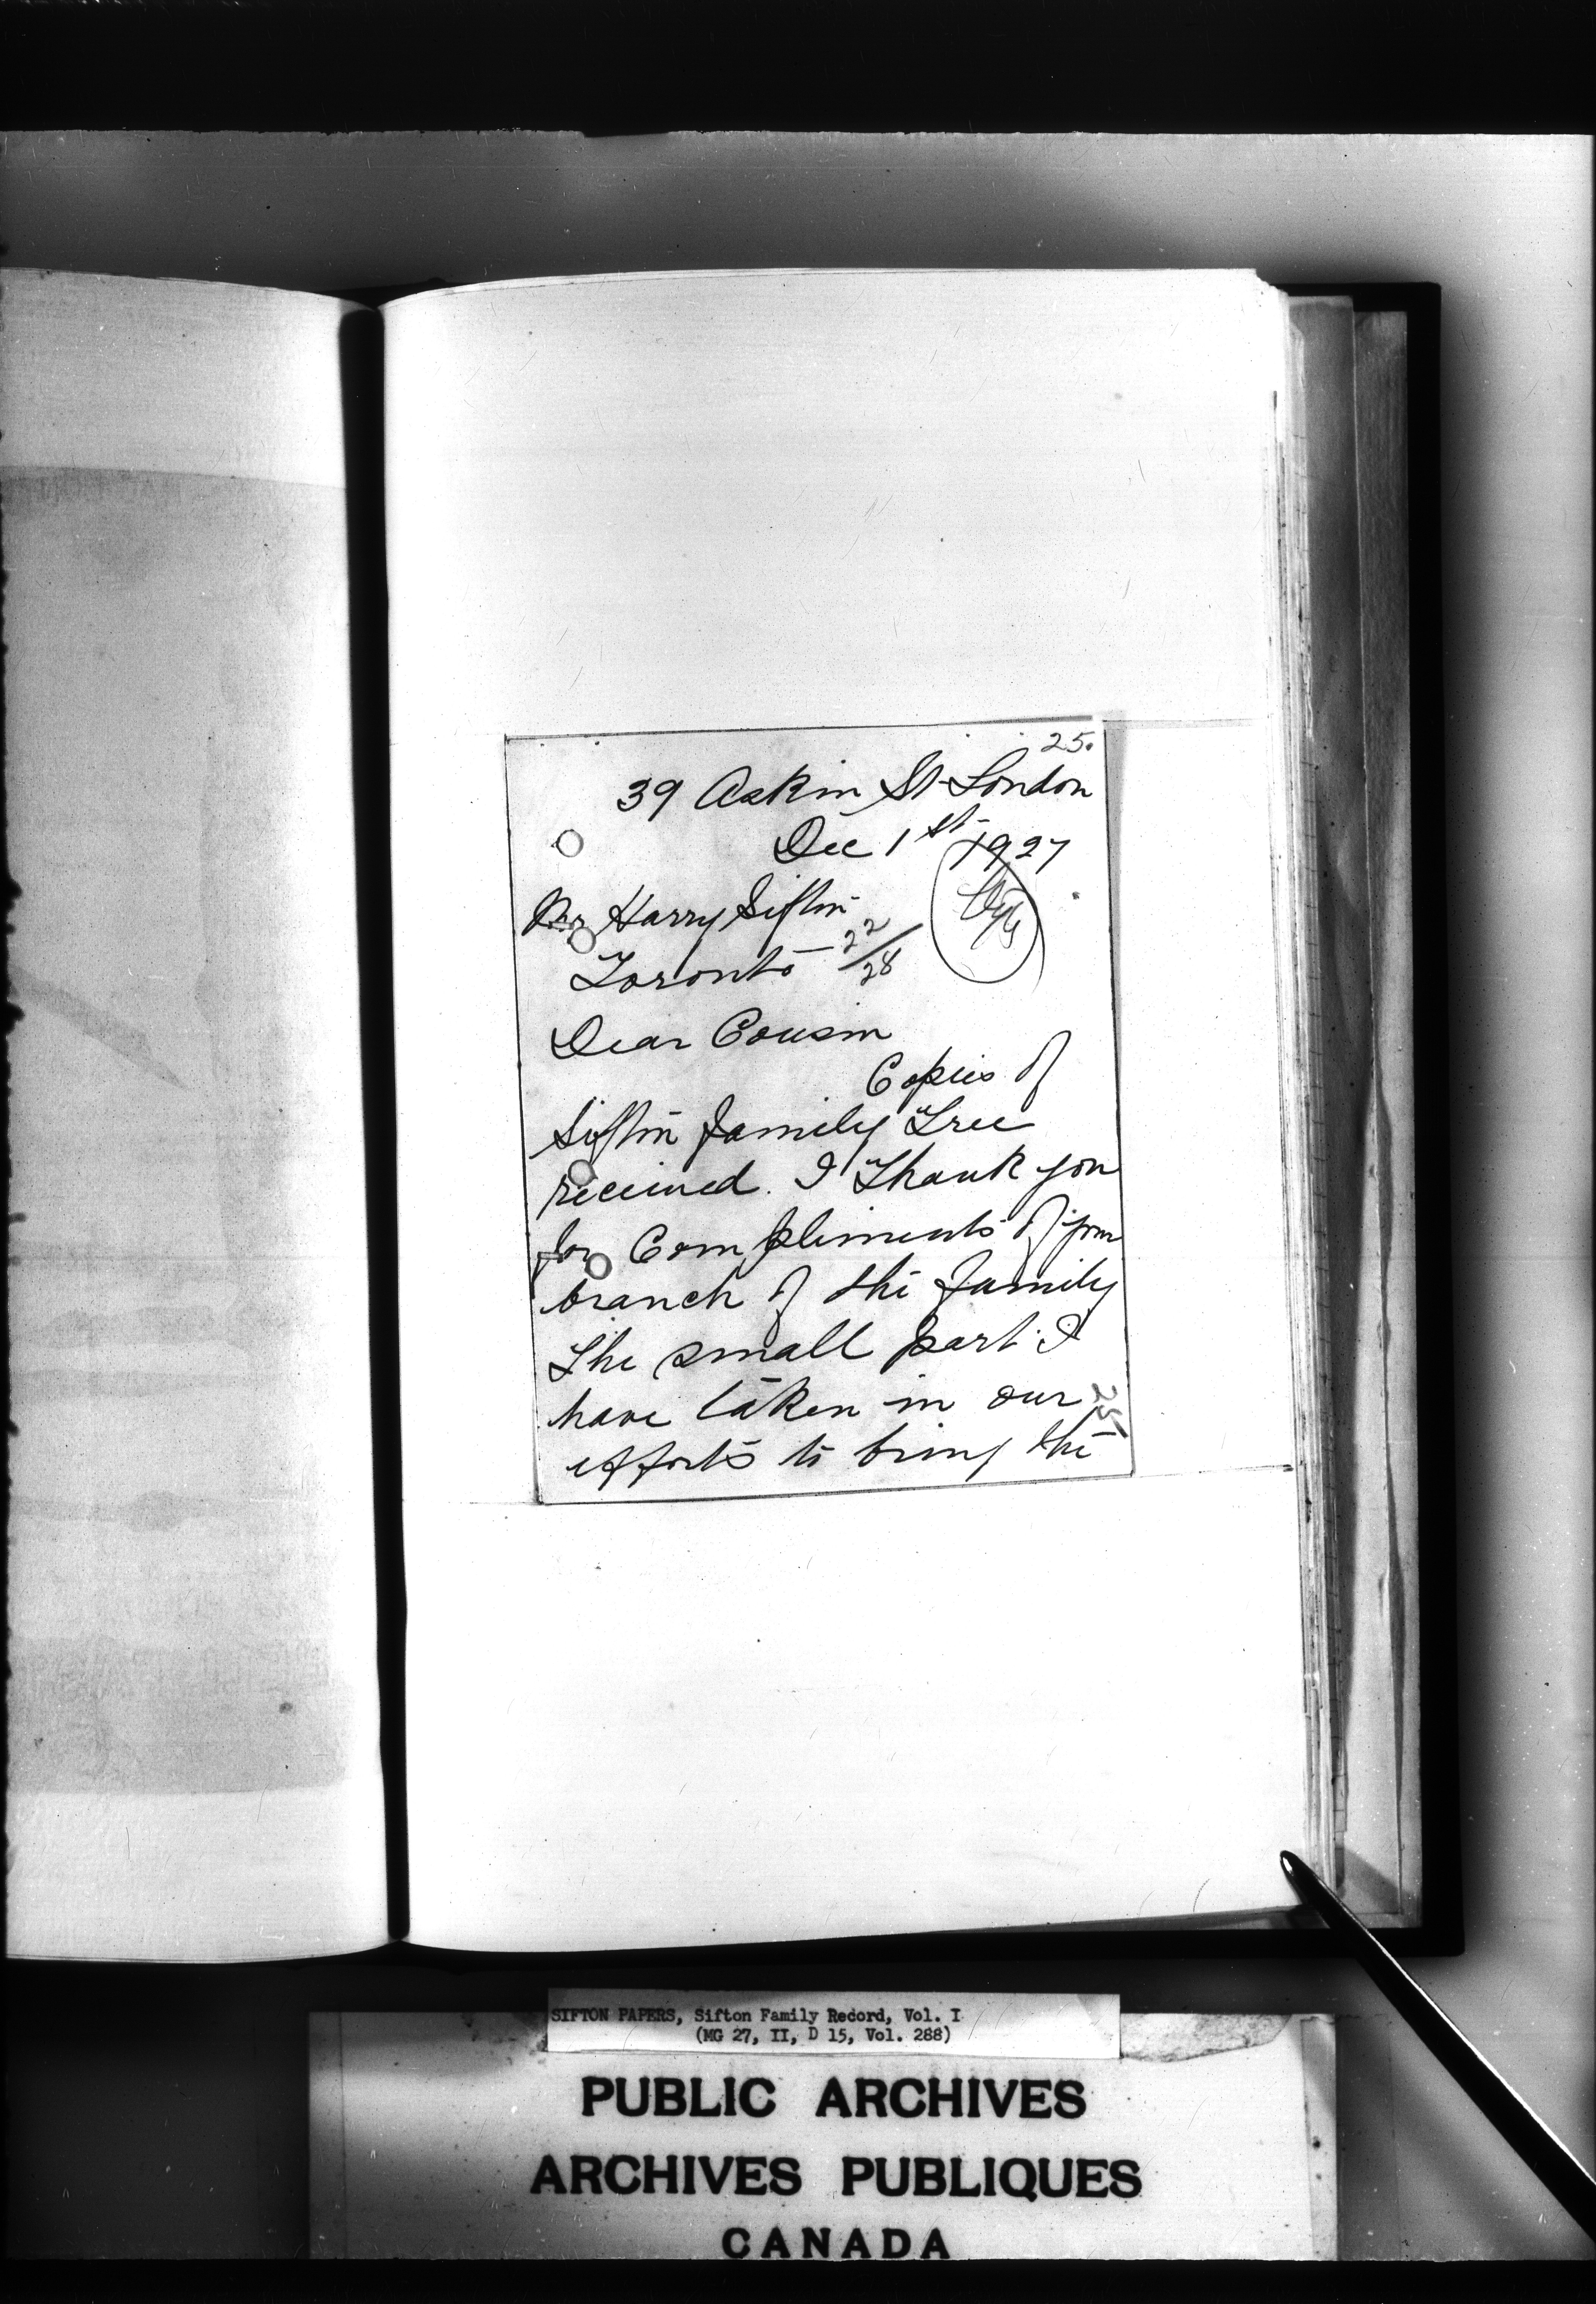 25.
39 Askin St London
Dec 1st 1927
Mr Harry Sifton
Toronto 22/28
Dear Cousin
Copies of
Sifton family Tree
received. I Thank you
for Compliments of your
branch of the family
The small part I
have taken in our
efforts to bring the
25
SIFTON PAPERS, Sifton Family Record, Vol. I
(MG 27, II, D 15, Vol. 288)
PUBLIC ARCHIVES
ARCHIVES PUBLIQUES
CANADA